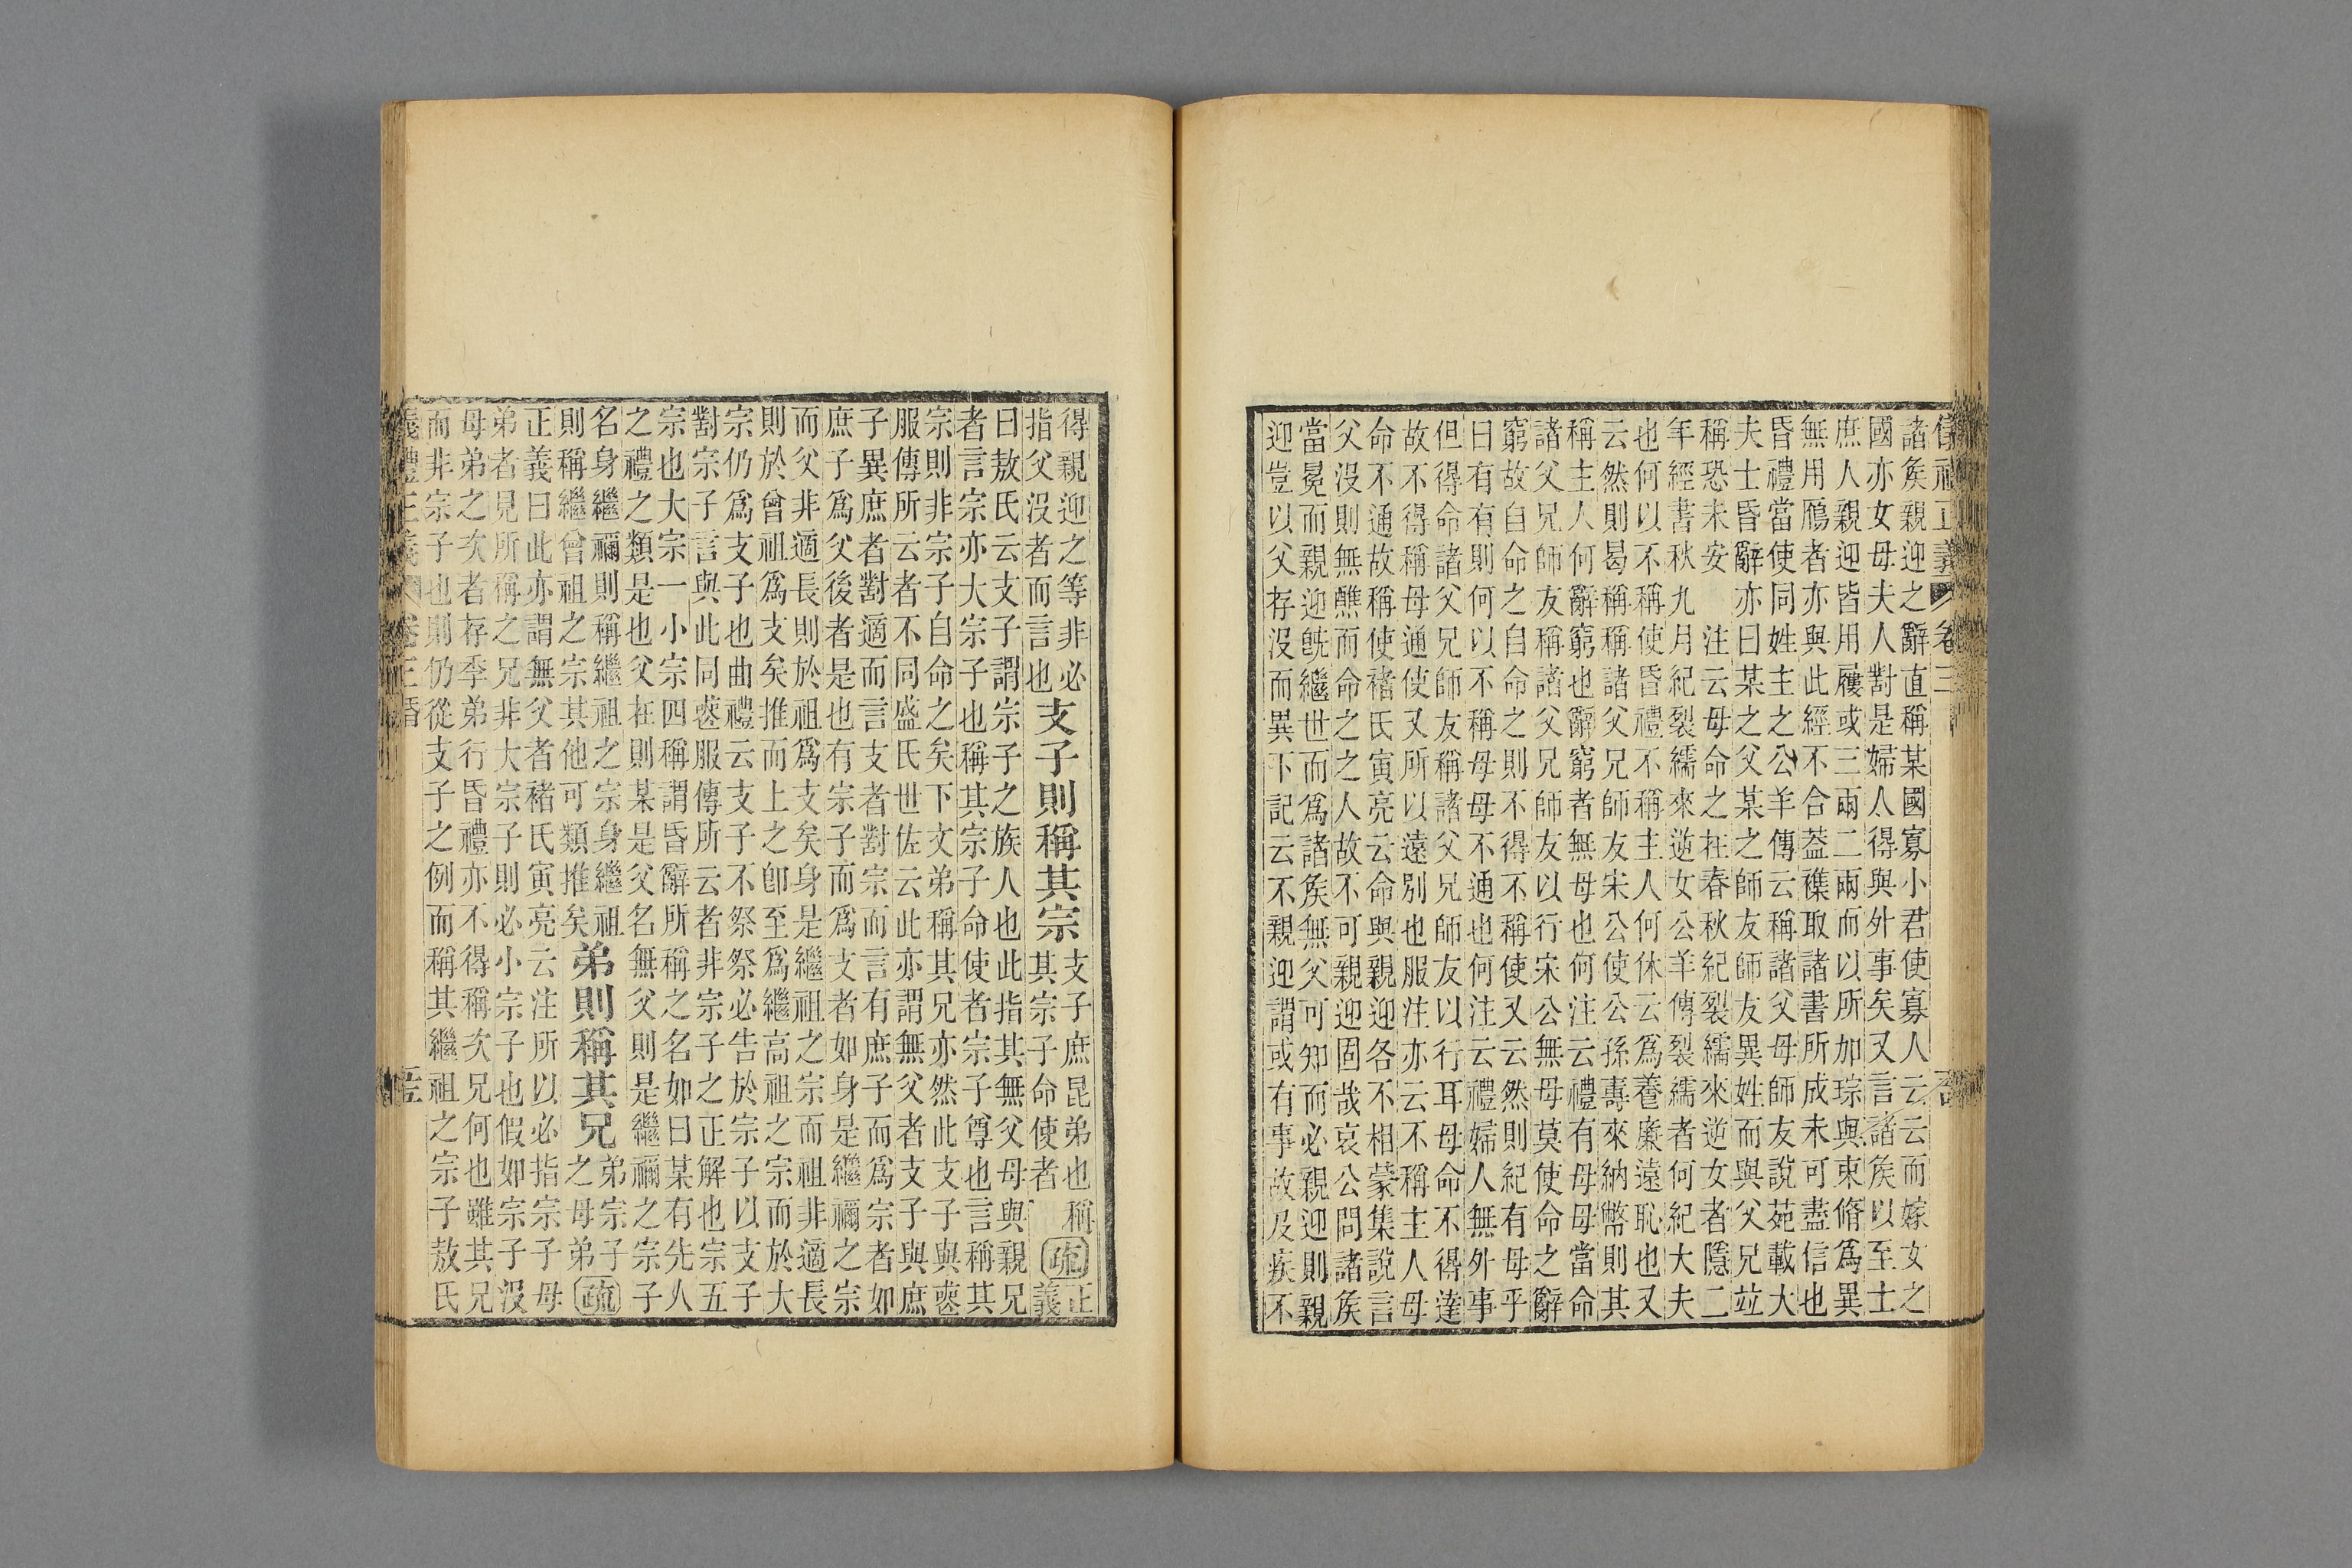 諸矦親迎之辭直稱某國寡小君使寡人云云而嫁女之
國亦女母夫人對是婦人得與外事矣又言諸矦以至士
庶人親迎皆用屨或三兩二兩而以所加琮與束脩爲異
無用鴈者亦與此經不合葢襍取諸書所成未可盡信也
昏禮當使同姓主之公羊傳云稱諸父母師友說苑載大
夫士昏辭亦曰某之父某之師友師友異姓而與父兄竝
稱恐未安 注云母命之在春秋紀裂繻來逆女者隱二
年經書秋九月紀裂繻來逆女公羊傳裂繻者何紀大夫
也何以不稱使昏禮不稱主人何休云爲養廉遠恥也又
云然則曷稱稱諸父兄師友宋公使公孫壽來納幣則其
稱主人何辭窮也辭窮者無母也何注云禮有母母當命
諸父兄師友稱諸父兄師友以行宋公無母莫使命之辭
窮故自命之自命之則不得不稱使又云然則紀有母乎
曰有有則何以不稱母母不通也何注云禮婦人無外事
但得命諸父兄師友稱諸父兄師友以行耳母命不得達
故不得稱母通使又所以遠別也服注亦云不稱主人母
命不通故稱使褚氏寅亮云命與親迎各不相蒙集說言
父沒則無醮而命之之人故不可親迎固哉哀公問諸矦
當冕而親迎旣繼世而爲諸矦無父可知而必親迎則親
迎豈以父存沒而異下記云不親迎謂或有事故及疾不
得親迎之等非必支子則稱其宗支子庶昆弟也稱
指父沒者而言也其宗子命使者疏正義
曰敖氏云支子謂宗子之族人也此指其無父母與親兄
者言宗亦大宗子也稱其宗子命使者宗子尊也言稱其
宗則非宗子自命之矣下文弟稱其兄亦然此支子與䘮
服傳所云者不同盛氏世佐云此亦謂無父者支子與庶
子異庶者對適而言支者對宗而言有庶子而爲宗者如
庶子爲父後者是也有宗子而爲支者如身是繼禰之宗
而父非適長則於祖爲支矣身是繼祖之宗而祖非適長
則於曾祖爲支矣推而上之卽至爲繼高祖之宗而於大
宗仍爲支子也曲禮云支子不祭祭必告於宗子以支子
對宗子言與此同䘮服傳所云者非宗子之正解也宗五
宗也大宗一小宗四稱謂昏辭所稱之名如曰某有先人
之禮之類是也父在則某是父名無父則是繼禰之宗子
名身繼禰則稱繼祖之宗身繼祖
則稱繼曾祖之宗其他可類推矣弟則稱其兄弟宗子
之母弟疏
正義曰此亦謂無父者褚氏寅亮云注所以必指宗子母
弟者見所稱之兄非大宗子則必小宗子也假如宗子沒
母弟之次者存季弟行昏禮亦不得稱次兄何也雖其兄
而非宗子也則仍從支子之例而稱其繼祖之宗子敖氏